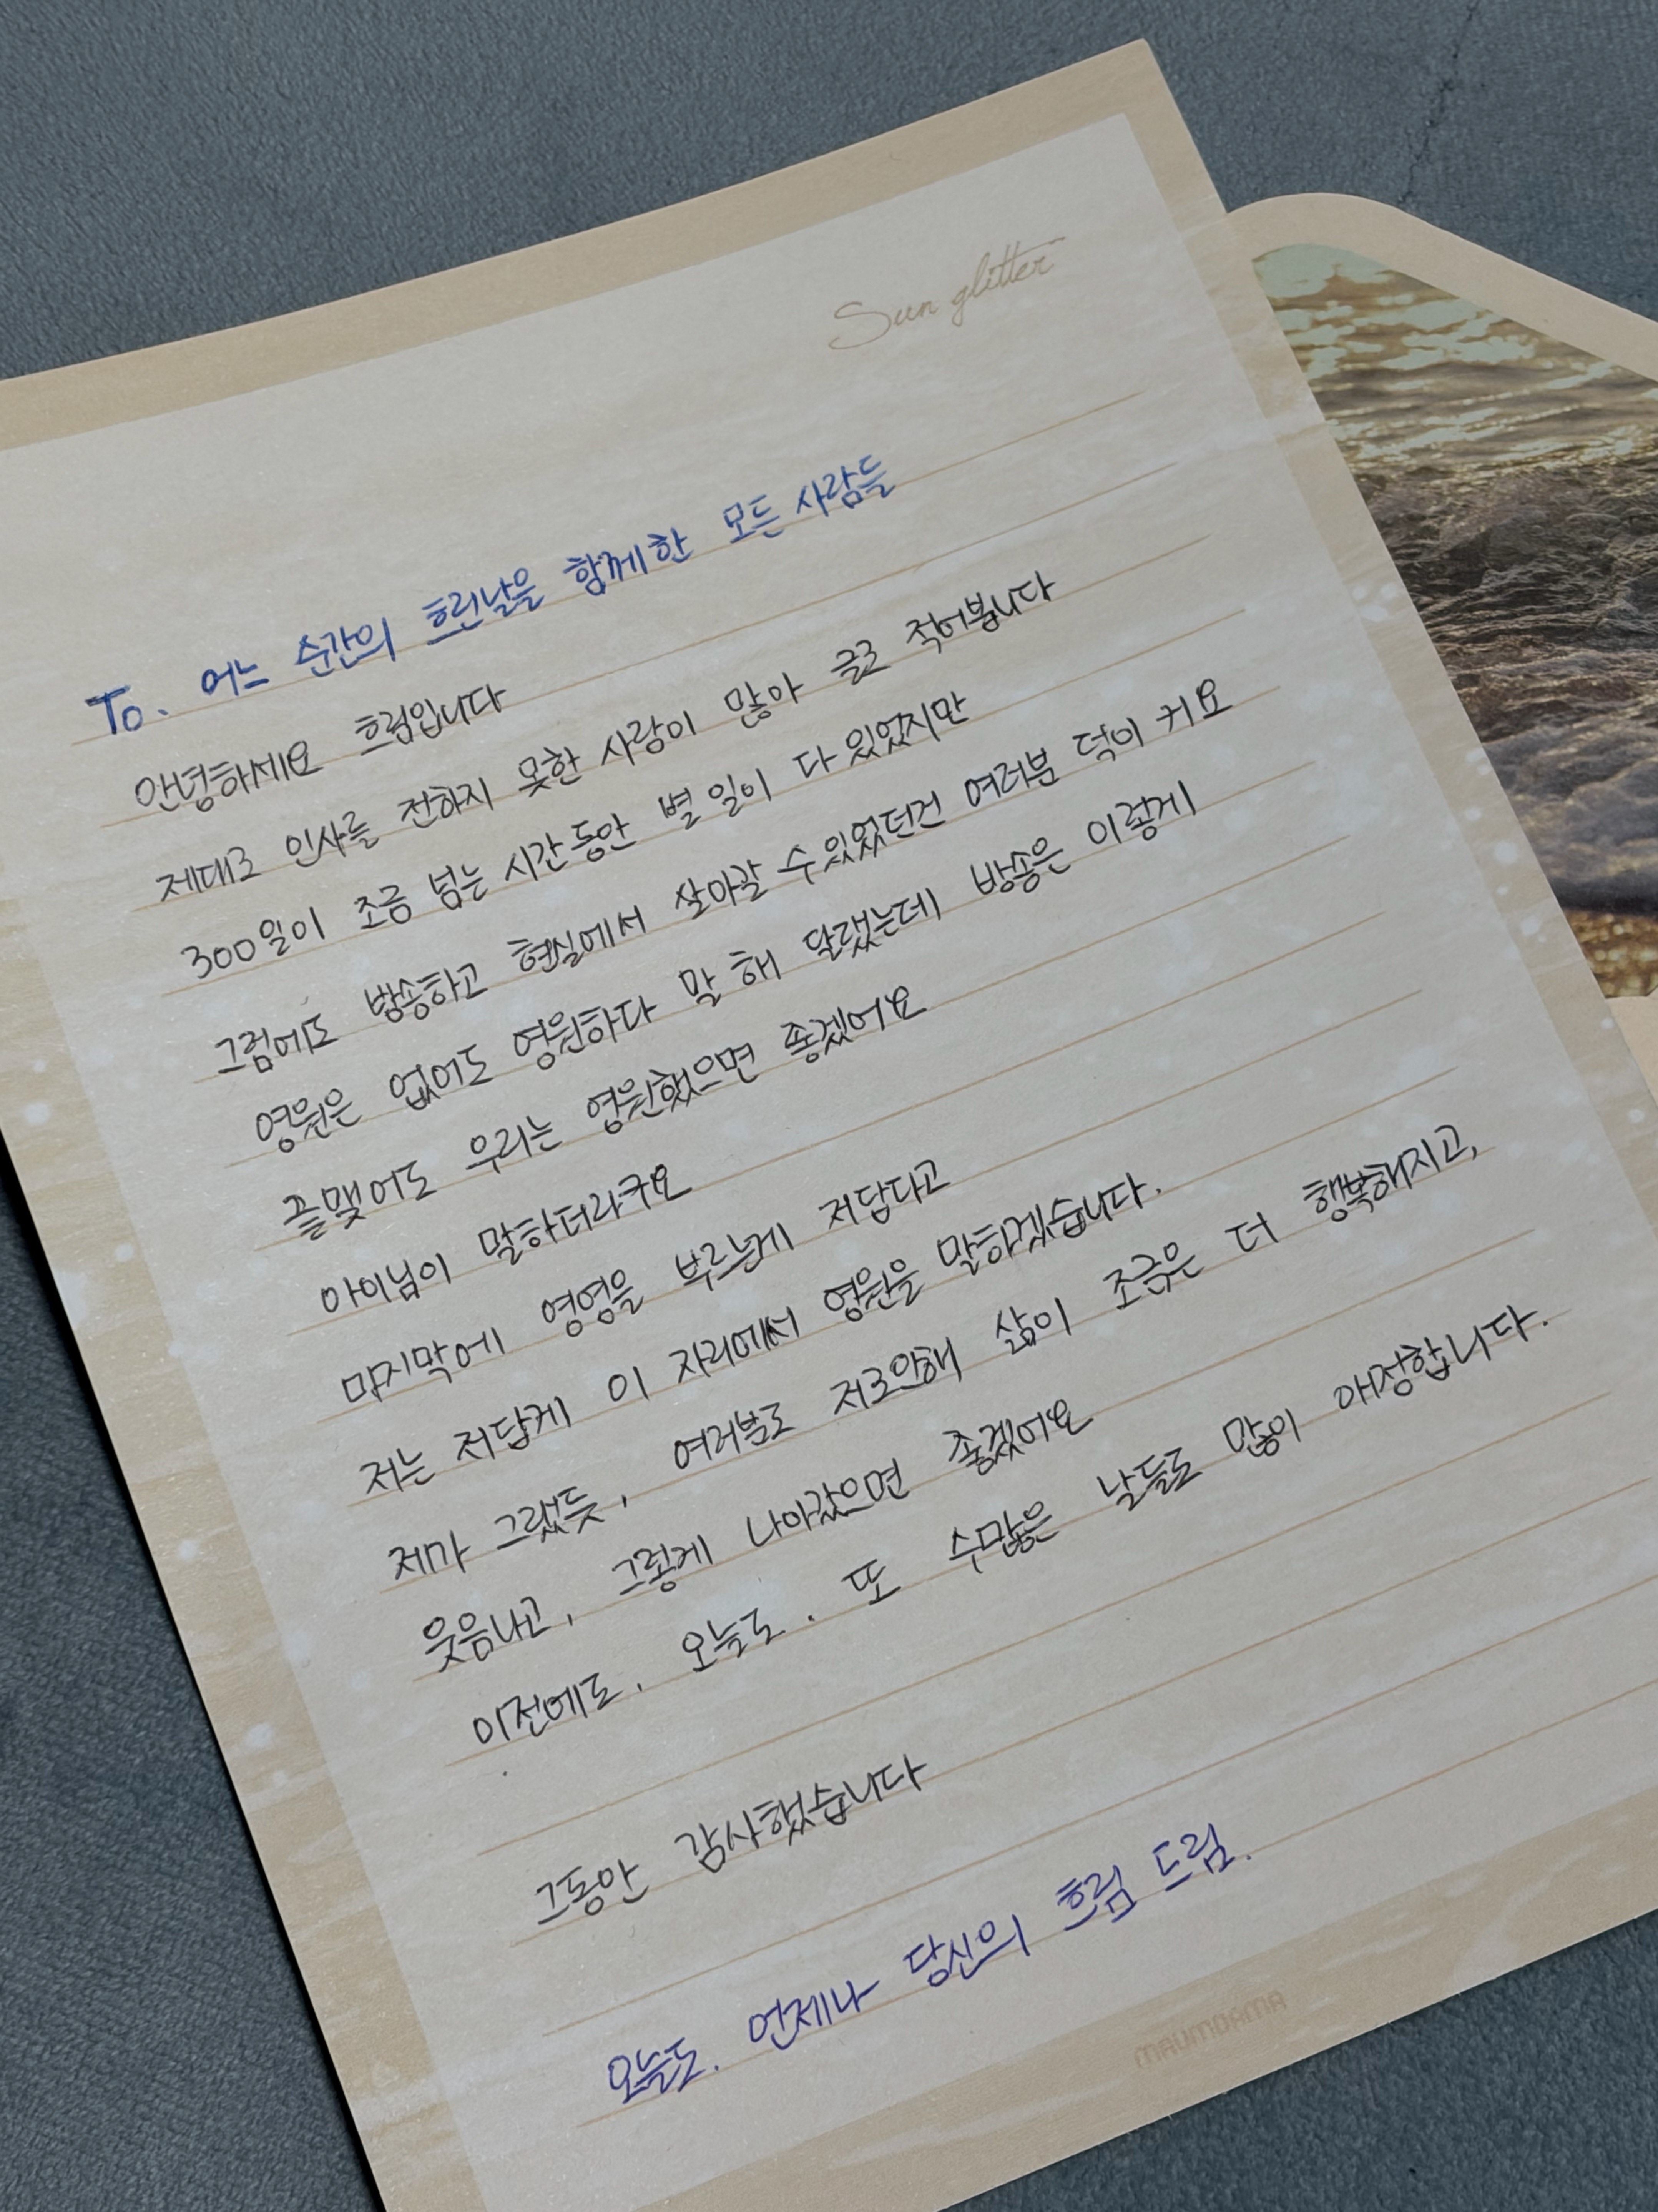 Sun glitter
To. 어느 순간의 흐린날을 함께한 모든 사람들
안녕하세요 흐림입니다
제대로 인사를 전하지 못한 사랑이 많아 글로 적어봅니다
300일이 조금 넘는 시간동안 별 일이 다 있었지만
그럼에도 방송하고 현실에서 살아갈 수 있었던건 여러분 덕이 커요
영원은 없어도 영원하다 말 해 달랬는데 방송은 이렇게
끝맺어도 우리는 영원했으면 좋겠어요
아이님이 말하더라구요
마지막에 영영을 부르는게 저답다고
저는 저답게 이 자리에서 영원을 말하겠습니다.
제가 그랬듯, 여러분도 저로인해 삶이 조금은 더 행복해지고,
웃음나고, 그렇게 나아갔으면 좋겠어요
이전에도, 오늘도. 또 수많은 날들도 많이 애정합니다.
그동안 감사했습니다
오늘도. 언제나 당신의 흐림 드림.
MAUMDAMA